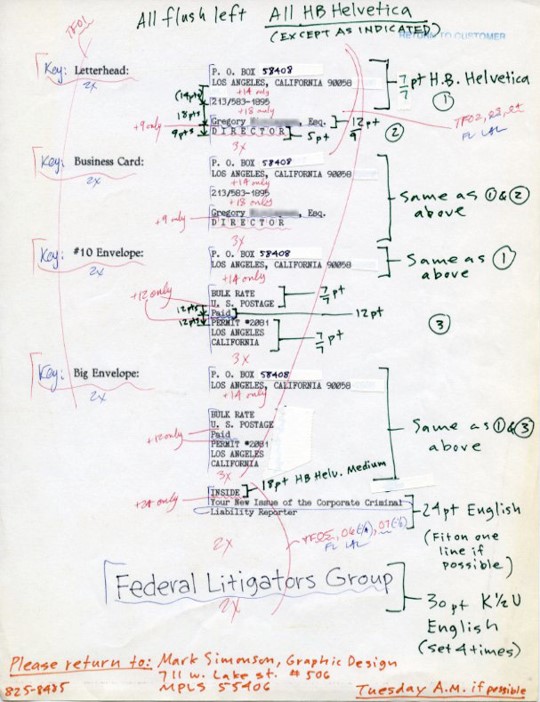 All flush left All HB Helvetica
(EXCEPT AS INDICATED)
RETURN TO CUSTOMER
TF01
Key: Letterhead:
2x
P. O. BOX 58408
LOS ANGELES, CALIFORNIA 90058
+14 only
(14pts)
213/583-1895
+18 only
18pts
Gregory Esq.
+9 only
9pts
DIRECTOR
3x
7/7 pt H.B. Helvetica
①
12/9 pt
②
5pt
TF02, 23, 24
FL LAL
Key: Business Card:
2x
P. O. BOX 58408
LOS ANGELES, CALIFORNIA 90058
+14 only
213/583-1895
+18 only
Gregory Esq.
+9 only
DIRECTOR
3x
Same as ① & ②
above
Key: #10 Envelope:
2x
P. O. BOX 58408
LOS ANGELES, CALIFORNIA 90058
+14 only
Same as ①
above
+12 only
BULK RATE
U. S. POSTAGE
7/7 pt
12pts
Paid
12pt
12pts
PERMIT #2081
LOS ANGELES
CALIFORNIA
7/7 pt
③
3x
Key: Big Envelope:
2x
P. O. BOX 58408
LOS ANGELES, CALIFORNIA 90058
+14 only
BULK RATE
U. S. POSTAGE
+12 only
Paid
PERMIT #2081
LOS ANGELES
CALIFORNIA
3x
Same as ① & ③
above
18pt HB Helv. Medium
INSIDE
+24 only
Your New Issue of the Corporate Criminal
Liability Reporter
24pt English
(Fit on one
line if
possible)
2x
FL LAL
Federal Litigators Group
2x
30pt K½U
English
(set 4 times)
Please return to: Mark Simonson, Graphic Design
711 W. Lake St. #506
825-8485 MPLS 55406
Tuesday A.M. if possible